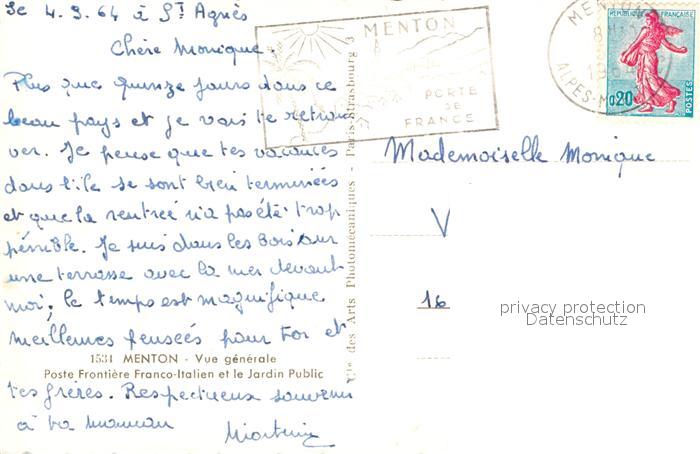 le 4.9.64 à St Agnès
Chère Monique.
Plus que quinze jours dans ce
beau pays et je vais te retrou
ver. Je pense que tes vacances
dans l'île se sont bien terminées
et que la rentrée n'a pas été trop
pénible. Je suis dans les bois sur
une terrasse avec la mer devant
moi; le temps est magnifique
meilleures pensées pour toi et
1531 MENTON - Vue générale
Poste Frontière Franco-Italien et le Jardin Public
tes frères. Respectueux souvenirs
à ta maman
Cie des Arts Photomécaniques - Paris-Strasbourg 3
MENTON
PORTE
DE
FRANCE
ALPES-M
REPUBLIQUE FRANÇAISE
0,20
POSTES
Mademoiselle Monique
V
16
privacy protection
Datenschutz